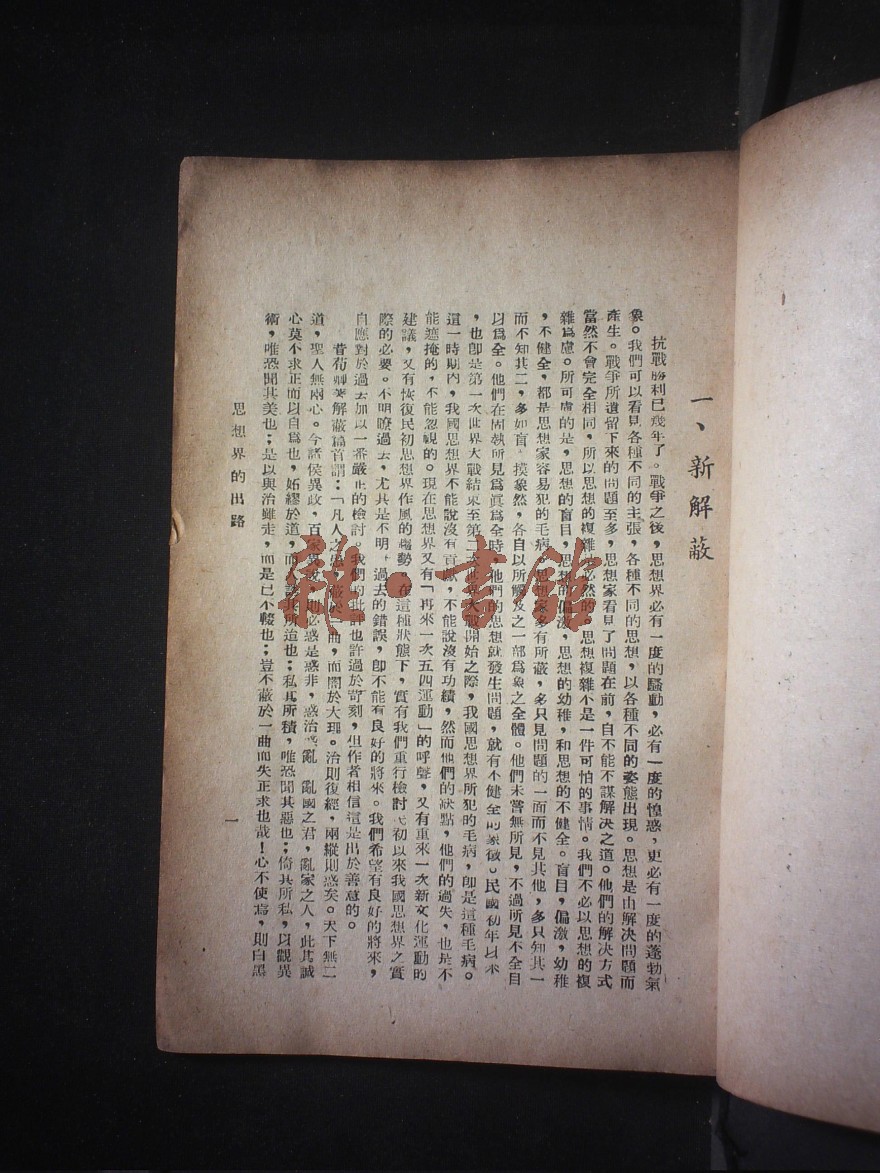 一、新解蔽
抗戰勝利已幾年了。戰爭之後，思想界必有一度的騷動，必有一度的惶惑，更必有一度的蓬勃氣
象。我們可以看見各種不同的主張，各種不同的思想，以各種不同的姿態出現。思想是由解決問題而
產生。戰爭所遺留下來的問題至多，思想家看見了問題在前，自不能不謀解決之道。他們的解決方式
當然不會完全相同，所以思想的複雜是必然的。思想複雜不是一件可怕的事情。我們不必以思想的複
雜爲慮。所可慮的是，思想的盲目，思想的偏激，思想的幼稚，和思想的不健全。盲目，偏激，幼稚
，不健全，都是思想家容易犯的毛病。思想家多有所蔽，多只見問題的一面而不見其他，多只知其一
而不知其二，多如盲人摸象然，各自以所觸及之一部爲象之全體。他們未嘗無所見，不過所見不全目
以爲全。他們在固執所見爲眞爲全時，他們的思想就發生問題，就有不健全的象徵。民國初年以來
，也卽是第一次世界大戰結束至第二次世界大戰開始之際，我國思想界所犯的毛病，卽是這種毛病。
這一時期內，我國思想界不能說沒有貢獻，不能說沒有功績，然而他們的缺點，他們的過失，也是不
能遮掩的，不能忽視的。現在思想界又有「再來一次五四運動」的呼聲，又有重來一次新文化運動的
建議，又有恢復民初思想界作風的趨勢。在這種狀態下，實有我們重行檢討民初以來我國思想界之實
際的必要。不明瞭過去，尤其是不明 過去的錯誤，卽不能有良好的將來。我們希望有良好的將來，
自應對於過去加以一番嚴正的檢討。我們的批評也許過於苛刻，但作者相信這是出於善意的。
昔荀卿著解蔽篇首謂：「凡人之患，蔽於一曲，而闇於大理。治則復經，兩疑則惑矣。天下無二
道，聖人無兩心。今諸侯異政，百家異說，則必或是或非，或治或亂 亂國之君，亂家之人，此其誠
心莫不求正而以自爲也，妬繆於道，而 其所迨也；私其所積，唯恐聞其惡也；倚其所私，以觀異
術，唯恐聞其美也；是以與治雖走，而是己不輟也；豈不蔽於一曲而失正求也哉！心不使焉，則白黑
思想界的出路
一
龍 書館